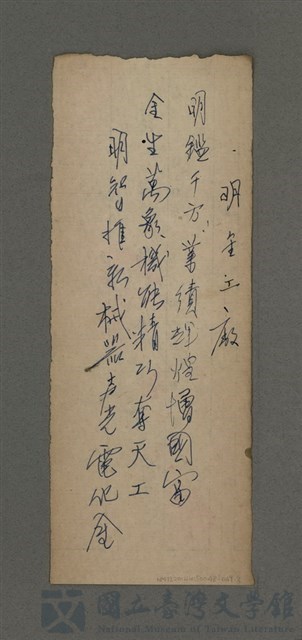 明金工廠
明鑑千方業績輝煌增國富
金坐萬象機能精巧奪天工
明智推新械器声光電化全
國立臺灣文學館
National Museum of Taiwan Literature